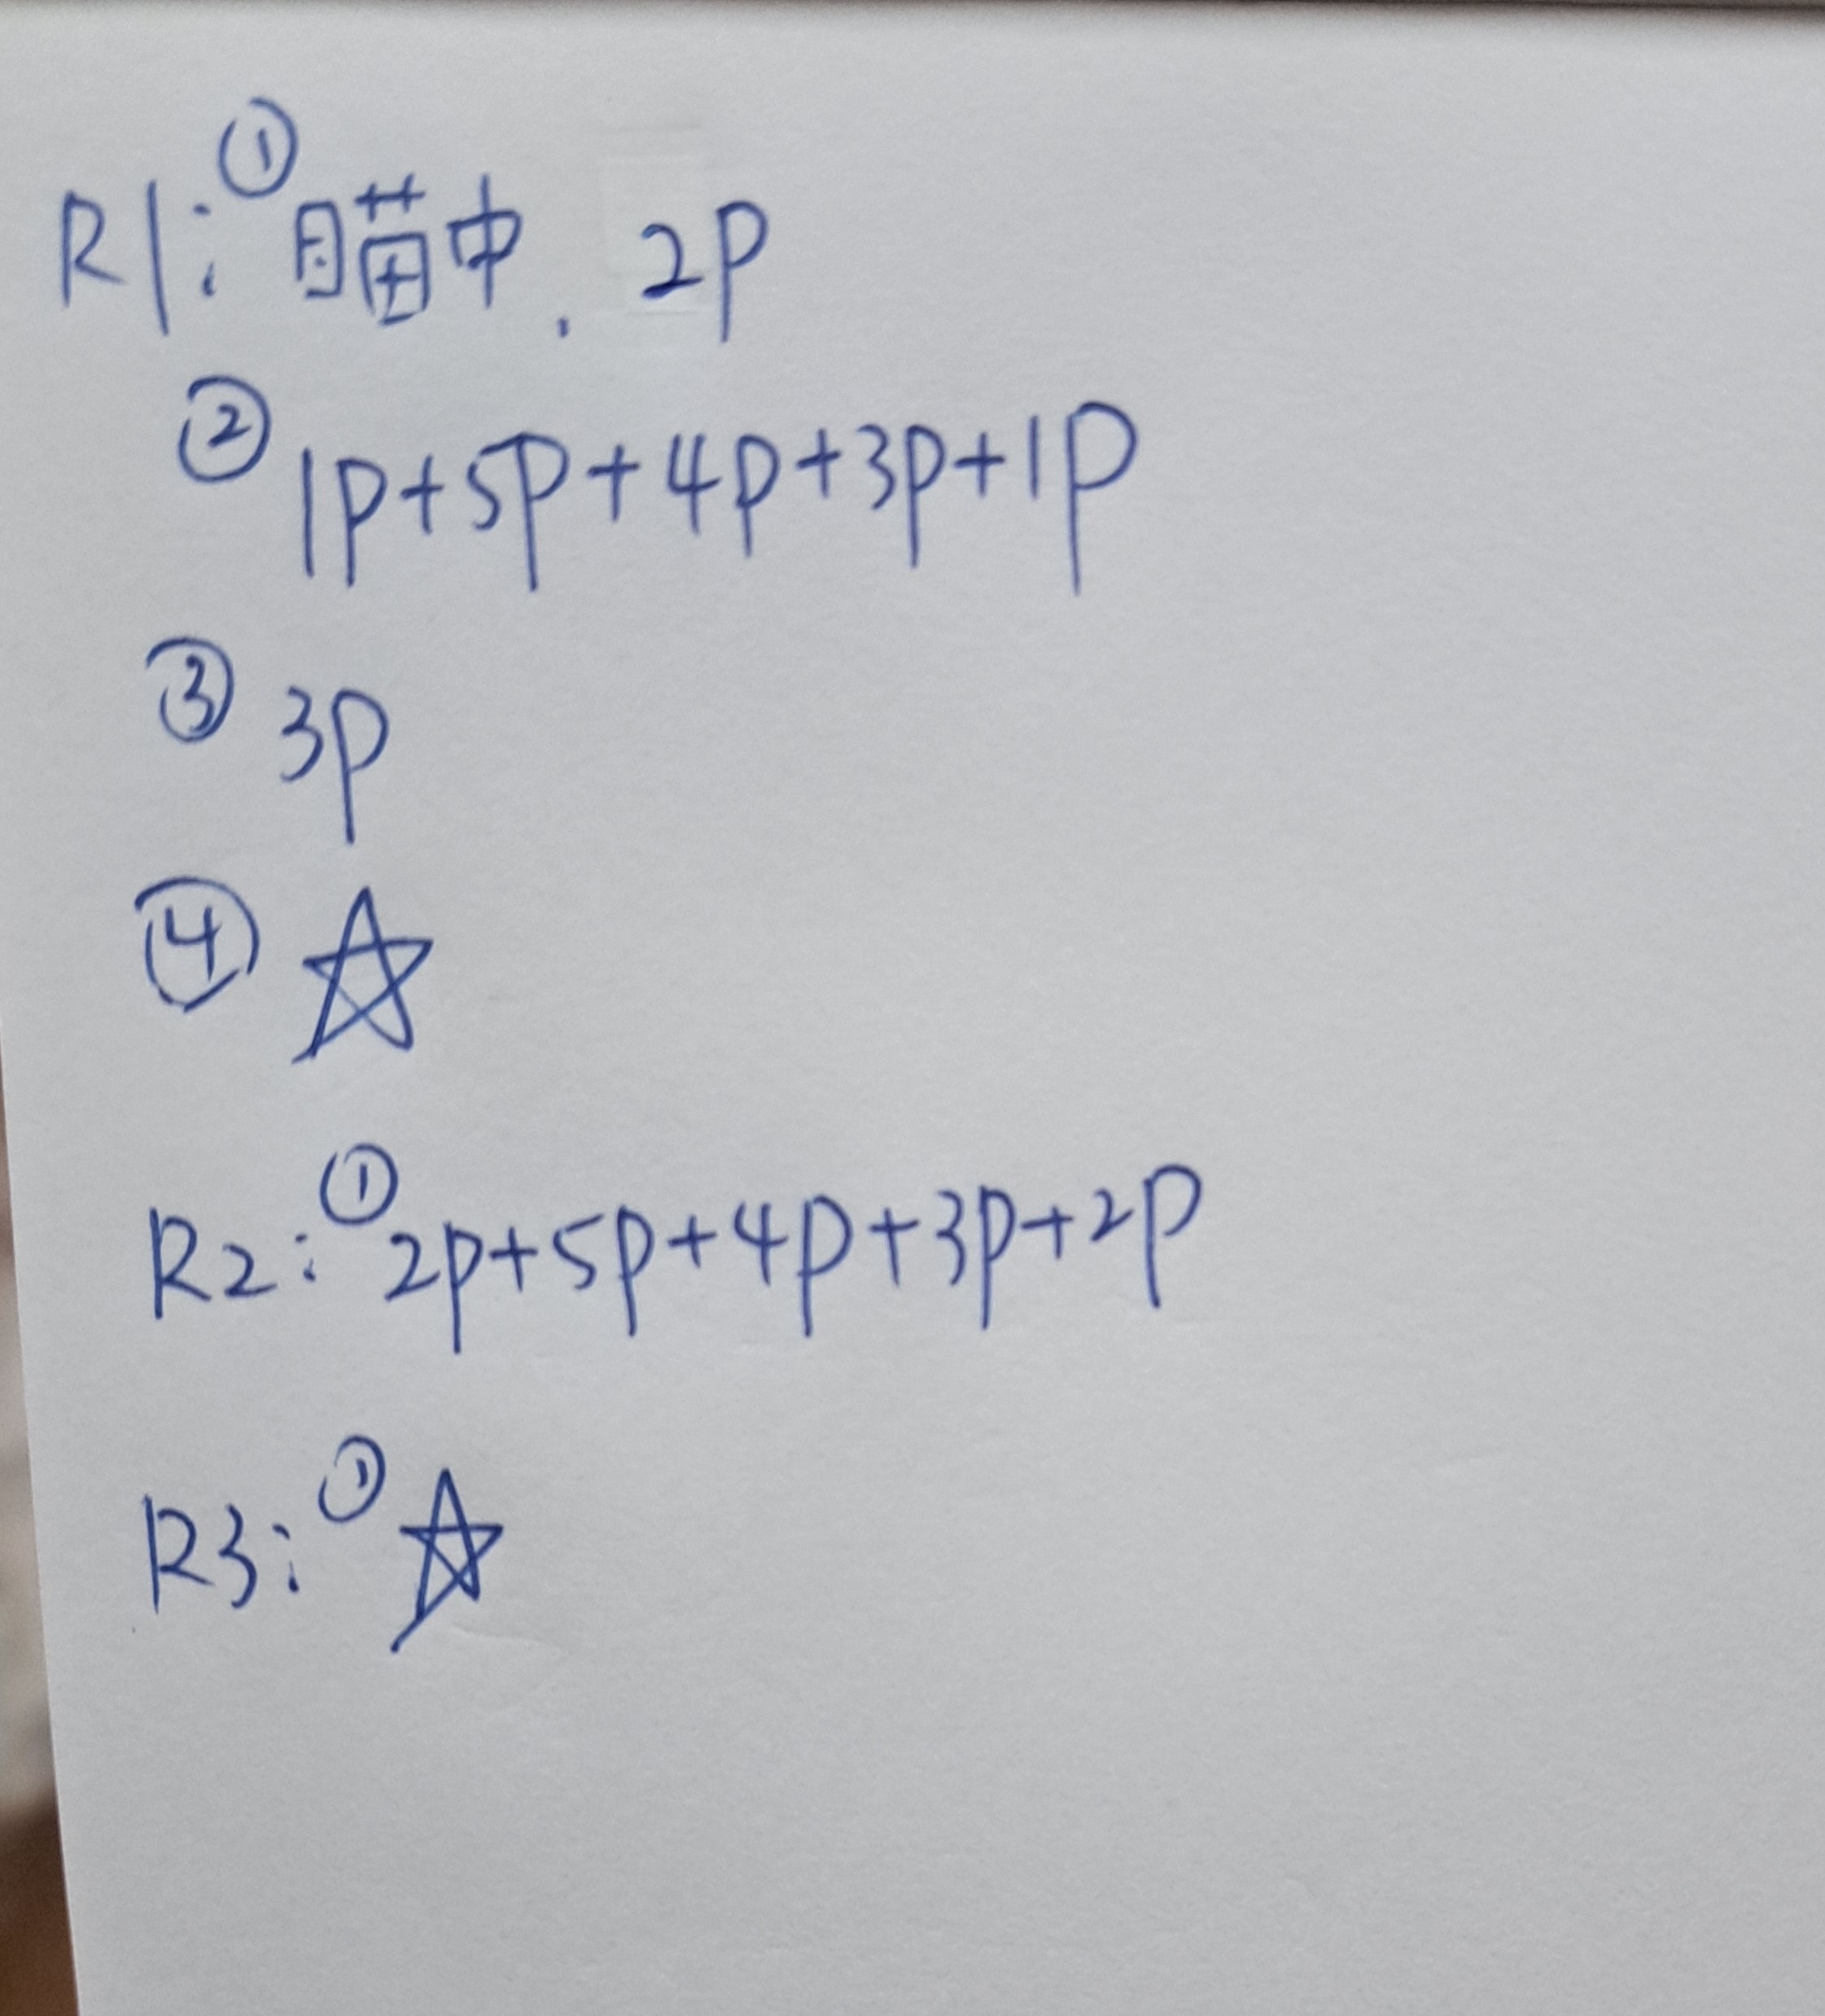 R1: ①瞄中. 2P
②1P+5P+4P+3P+1P
③ 3P
④ ☆
R2: ①2P+5P+4P+3P+2P
R3: ①☆